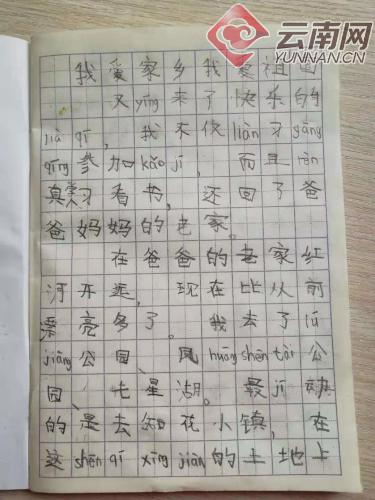 云南网
YUNNAN.CN
我爱家乡我爱祖国
又yíng来了快乐的
jià qī，我不仅liàn习gāng
qíng参加kǎo jí，而且rèn
真学习看书，还回了爸
爸妈妈的老家。
在爸爸的老家红
河开远，现在比从前
漂亮多了。我去了lú
jiāng公园、凤huáng shēn tài公
园、七星湖。最jī
的是去知花小镇，在
这shēn qí xīng jiàn的土地上